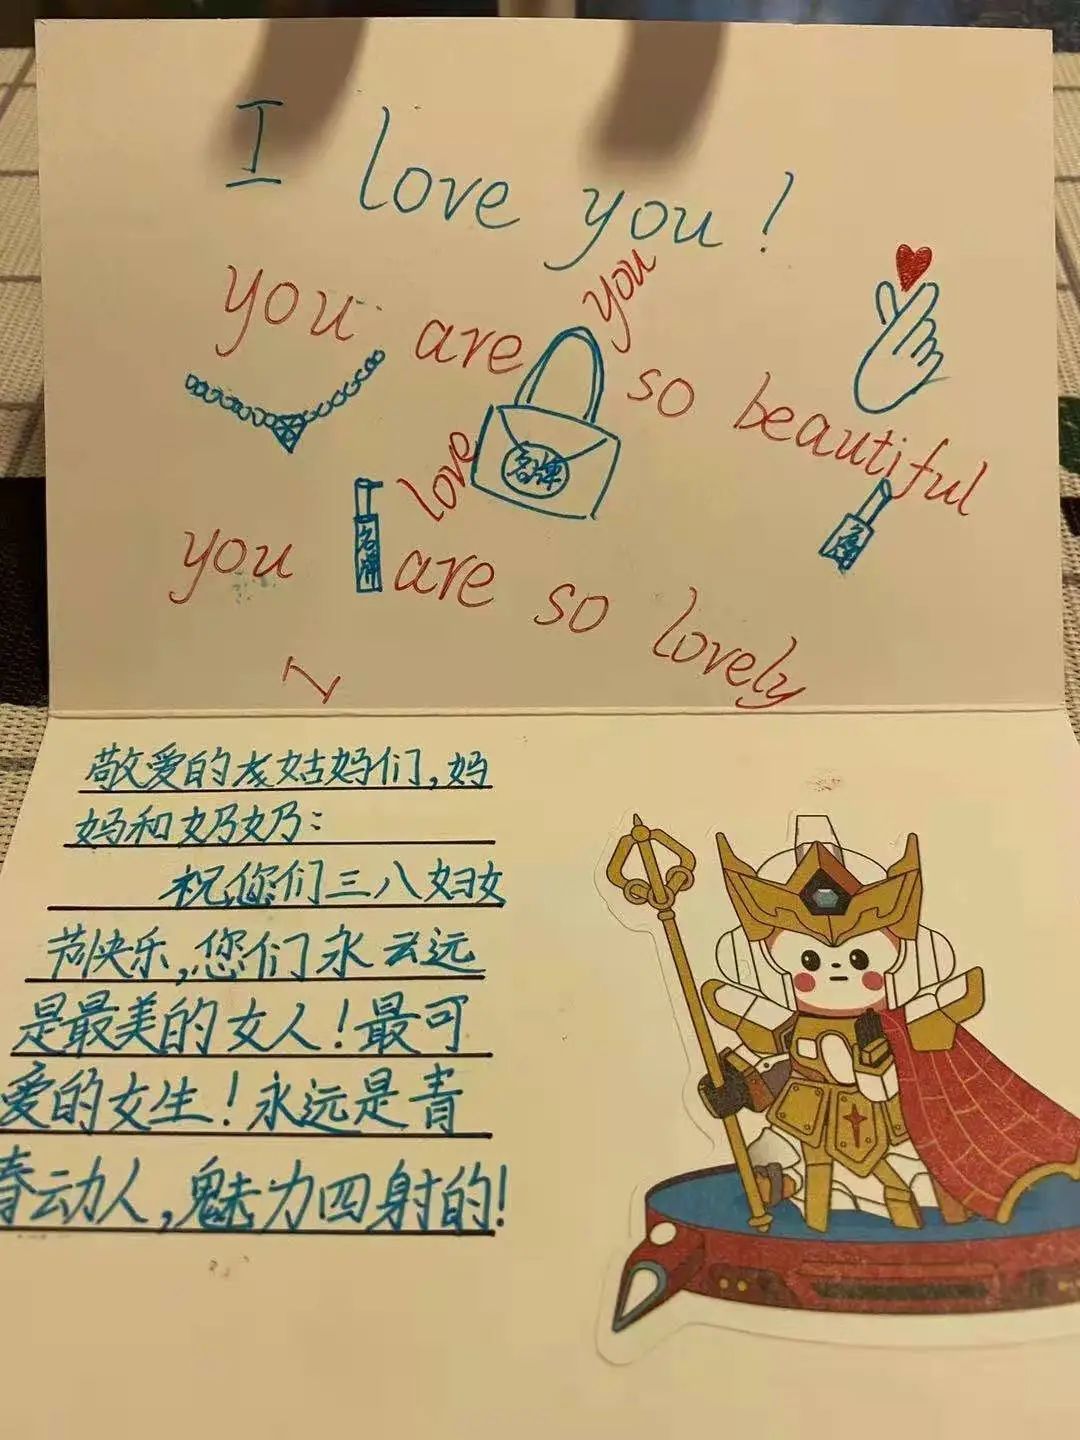 I love you!
you are so beautiful
you are so lovely
I love you
名牌
名牌
敬爱的姑妈们,妈
妈和奶奶:
祝您们三八妇女
节快乐,您们永云远
是最美的女人!最可
爱的女生!永远是青
春动人,魅力四射的!